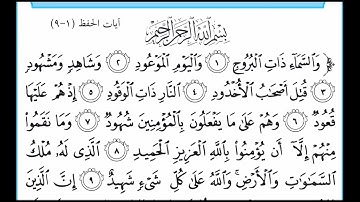 آيات الحفظ (١-٩)
بِسْمِ ٱللَّهِ ٱلرَّحْمَٰنِ ٱلرَّحِيمِ
وَٱلسَّمَآءِ ذَاتِ ٱلْبُرُوجِ ١ وَٱلْيَوْمِ ٱلْمَوْعُودِ ٢ وَشَاهِدٍ وَمَشْهُودٍ
٣ قُتِلَ أَصْحَٰبُ ٱلْأُخْدُودِ ٤ ٱلنَّارِ ذَاتِ ٱلْوَقُودِ ٥ إِذْ هُمْ عَلَيْهَا
قُعُودٌ ٦ وَهُمْ عَلَىٰ مَا يَفْعَلُونَ بِٱلْمُؤْمِنِينَ شُهُودٌ ٧ وَمَا نَقَمُوا۟
مِنْهُمْ إِلَّآ أَن يُؤْمِنُوا۟ بِٱللَّهِ ٱلْعَزِيزِ ٱلْحَمِيدِ ٨ ٱلَّذِى لَهُۥ مُلْكُ
ٱلسَّمَٰوَٰتِ وَٱلْأَرْضِ ۚ وَٱللَّهُ عَلَىٰ كُلِّ شَىْءٍ شَهِيدٌ ٩ إِنَّ ٱلَّذِينَ